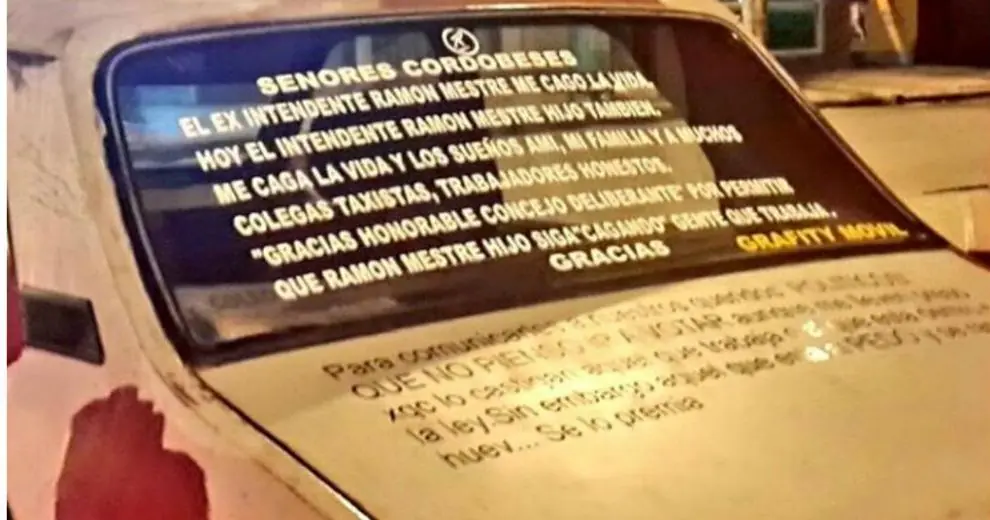 SENORES CORDOBESES
EL EX INTENDENTE RAMON MESTRE ME CAGO LA VIDA.
HOY EL INTENDENTE RAMON MESTRE HIJO TAMBIEN,
ME CAGA LA VIDA Y LOS SUEÑOS AMI, MI FAMILIA Y A MUCHOS
COLEGAS TAXISTAS, TRABAJADORES HONESTOS.
"GRACIAS HONORABLE CONCEJO DELIBERANTE" POR PERMITIR
QUE RAMON MESTRE HIJO SIGA "CAGANDO" GENTE QUE TRABAJA.
GRACIAS
GRAFITY MOVIL
Para POLITICOS
QUE NO PIENSO IR A VOTAR aunque me lleven preso
xqc lo castigan aquel que trabaja que esta
la ley. Sin embargo aquel que PEDO y
huev... Se lo premia